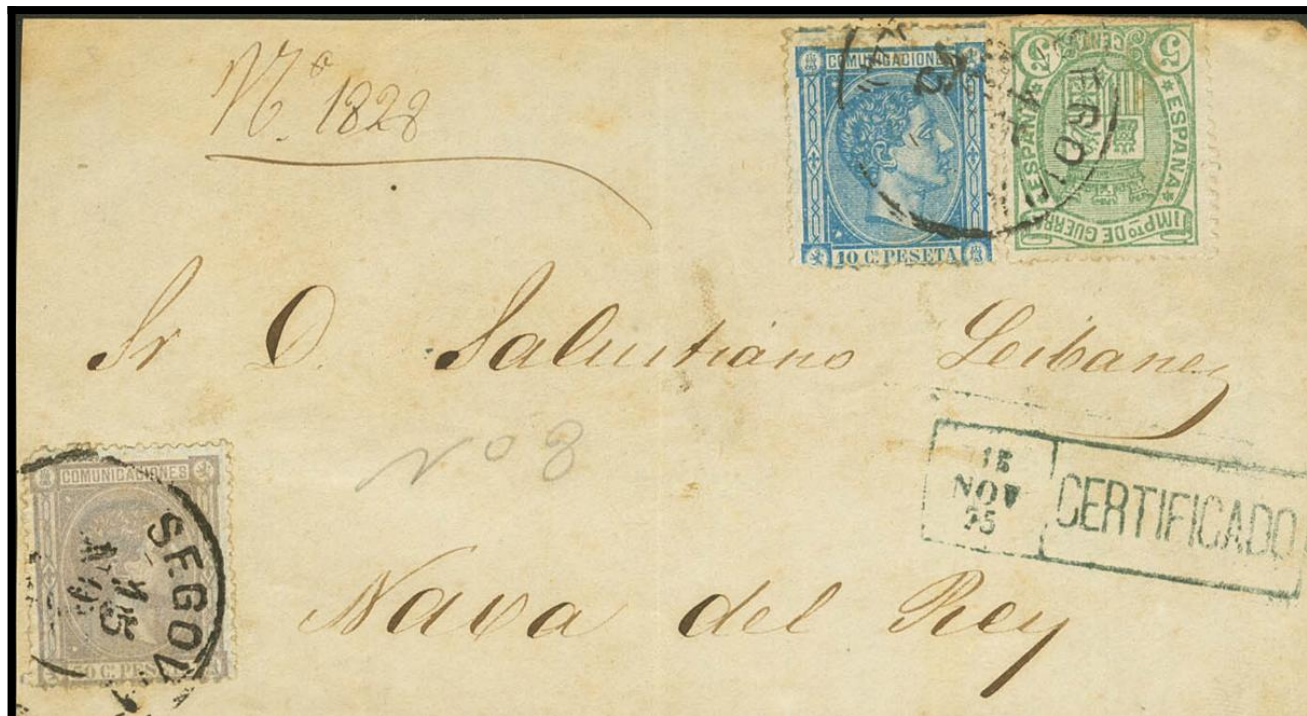 Nº. 1828
COMUNICACIONES
10 C. PESETA
5 CENT 5
ESPAÑA ESPAÑA
IMPTO DE GUERRA
Sr D. Salustiano
Nº 8
15
NOV
75
CERTIFICADO
COMUNICACIONES
SEGOV
Nava del Rey